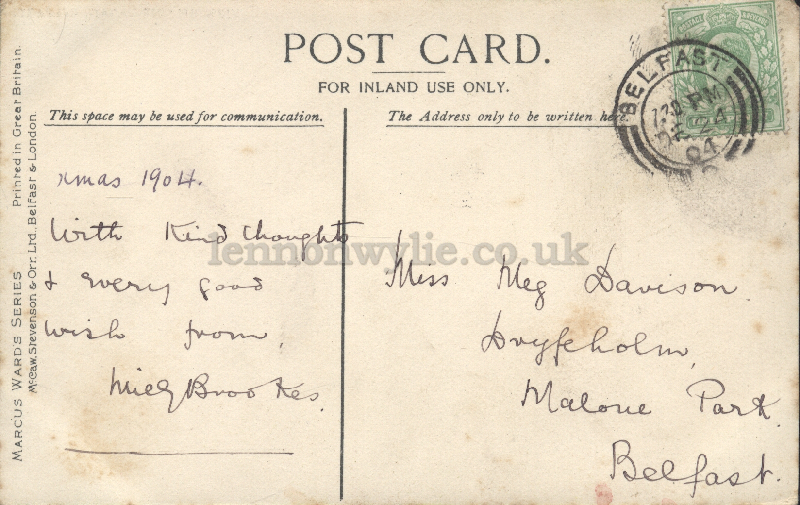 POST CARD.
FOR INLAND USE ONLY.
This space may be used for communication.
The Address only to be written here.
BELFAST
7.30 PM
DE 24
04
POSTAGE REVENUE
Xmas 1904.
With Kind thoughts
& every good
wish from,
Brookes.
Miss Meg Davison.
Dryfeholm,
Malone Park.
Belfast.
MARCUS WARD'S SERIES Printed in Great Britain.
McCaw, Stevenson & Orr, Ltd., Belfast & London.
lennonwylie.co.uk